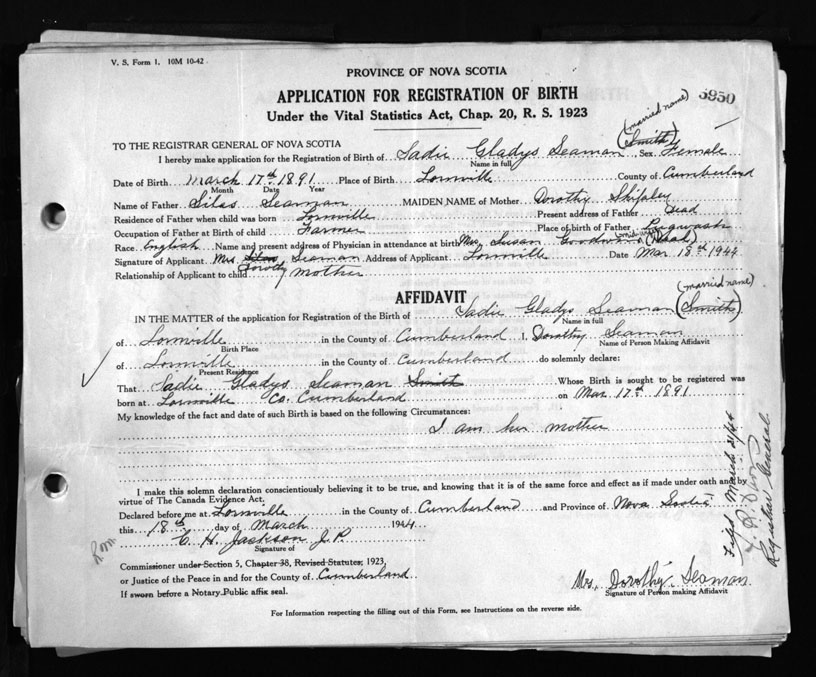 V. S. Form 1. 10M 10-42
PROVINCE OF NOVA SCOTIA
5950
APPLICATION FOR REGISTRATION OF BIRTH
Under the Vital Statistics Act, Chap. 20, R. S. 1923
(married name)
TO THE REGISTRAR GENERAL OF NOVA SCOTIA
I hereby make application for the Registration of Birth of Sadie Gladys Seaman (Smith) Sex Female
Name in full
Date of Birth March 17th 1891 Place of Birth Lornville County of Cumberland
Month Date Year
Name of Father Silas Seaman MAIDEN NAME of Mother Dorothy Shipley
Residence of Father when child was born Lornville Present address of Father Dead
Occupation of Father at Birth of child Farmer Place of birth of Father Pugwash
Race English Name and present address of Physician in attendance at birth Mrs. Susan Goodwin midwife (Dead)
Signature of Applicant Mrs. Dorothy Seaman Address of Applicant Lornville Date Mar 18th 1944
Relationship of Applicant to child mother
AFFIDAVIT
(married name)
IN THE MATTER of the application for Registration of the Birth of Sadie Gladys Seaman (Smith)
Name in full
of Lornville in the County of Cumberland I, Dorothy Seaman
Birth Place Name of Person Making Affidavit
of Lornville in the County of Cumberland do solemnly declare:
Present Residence
That Sadie Gladys Seaman Smith Whose Birth is sought to be registered was
born at Lornville Co. Cumberland on Mar 17th 1891
My knowledge of the fact and date of such Birth is based on the following Circumstances:
I am her mother
I make this solemn declaration conscientiously believing it to be true, and knowing that it is of the same force and effect as if made under oath and by
virtue of The Canada Evidence Act.
Declared before me at Lornville in the County of Cumberland and Province of Nova Scotia
this 18th day of March 1944
C. H. Jackson J. P.
Signature of
Commissioner under Section 5, Chapter 38, Revised Statutes, 1923,
or Justice of the Peace in and for the County of Cumberland
If sworn before a Notary Public affix seal.
Mrs. Dorothy Seaman
Signature of Person making Affidavit
For Information respecting the filling out of this Form, see Instructions on the reverse side.
Filed March 21/44
Registrar General